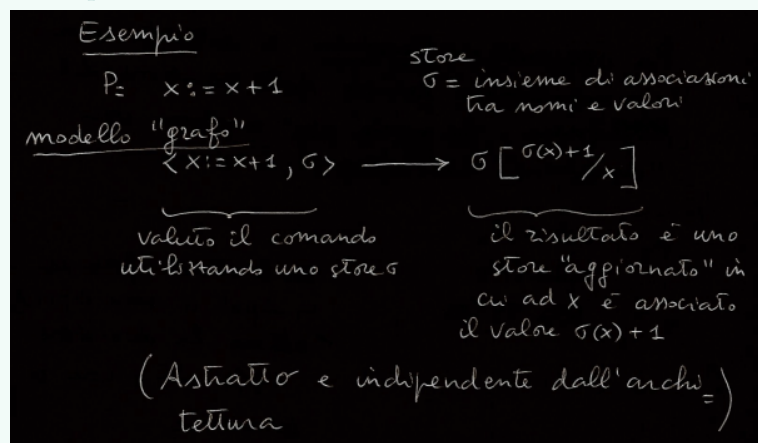 Esempio
P= x:=x+1
store
σ= insieme di associazioni
tra nomi e valori
modello "grafo"
<x:=x+1, σ> ⟶ σ[σ(x)+1/x]
valuto il comando
utilizzando uno store σ
il risultato è uno
store "aggiornato" in
cui ad x è associato
il valore σ(x)+1
(Astratto e indipendente dall'archi=
tettura)